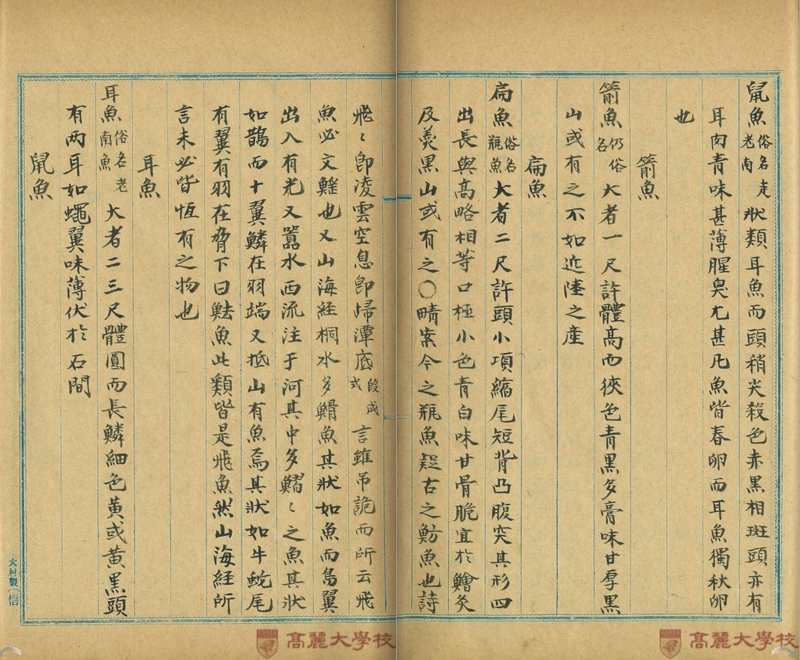 鼠魚俗名走老南狀類耳魚而頭稍尖殺色赤黑相斑頭亦有
耳肉青味甚薄腥臭尤甚凡魚皆春卵而耳魚獨秋卵
也
箭魚
箭魚仍俗名大者一尺許體高而狹色青黑多膏味甘厚黑
山或有之不如近陸之產
扁魚
扁魚俗名甁魚大者二尺許頭小項縮尾短背凸腹突其形四
出長與高略相等口極小色青白味甘骨脆宜於鱠炙
及羹黑山或有之〇晴案今之甁魚疑古之魴魚也詩
飛〻卽凌雲空息卽歸潭底段成式言雖吊詭而所云飛
魚必文鰩也又山海経桐水多䱻魚其狀如魚而鳥翼
出入有光又嚻水西流注于河其中多鰼〻之魚其狀
如鵲而十翼鱗在羽端又柢山有魚焉其狀如牛蛇尾
有翼有羽在脅下曰魼魚此類皆是飛魚然山海経所
言未必皆恆有之物也
耳魚
耳魚俗名老南魚大者二三尺體圓而長鱗細色黃或黃黑頭
有兩耳如蠅翼味薄伏於石間
鼠魚
高麗大學校
高麗大學校